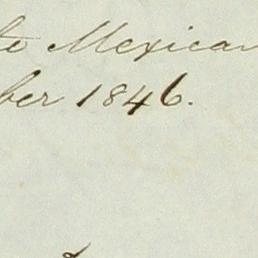 te Mexican
ber 1846.